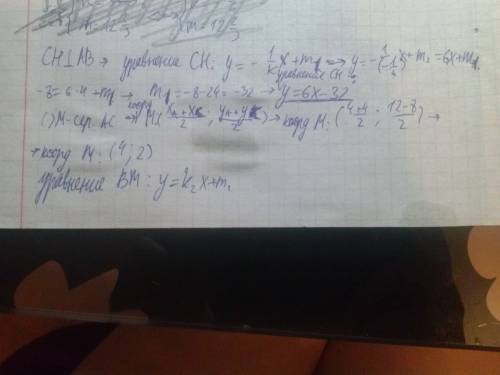 CH⊥AB → уравнение CH: y = -1/k x + m₁ ⇔ y = -1/(-1/6) x + m₁ = 6x + m₁
уравнение CH
-8 = 6·4 + m₁ → m₁ = -8-24 = -32 → y = 6x - 32
M - сер. AC ⇔ M (xA + xC / 2 ; yA + yC / 2) → коорд M: (4+4 / 2 ; 12-8 / 2) →
→ коорд M: (4; 2)
уравнение BM: y = k₂x + m₁